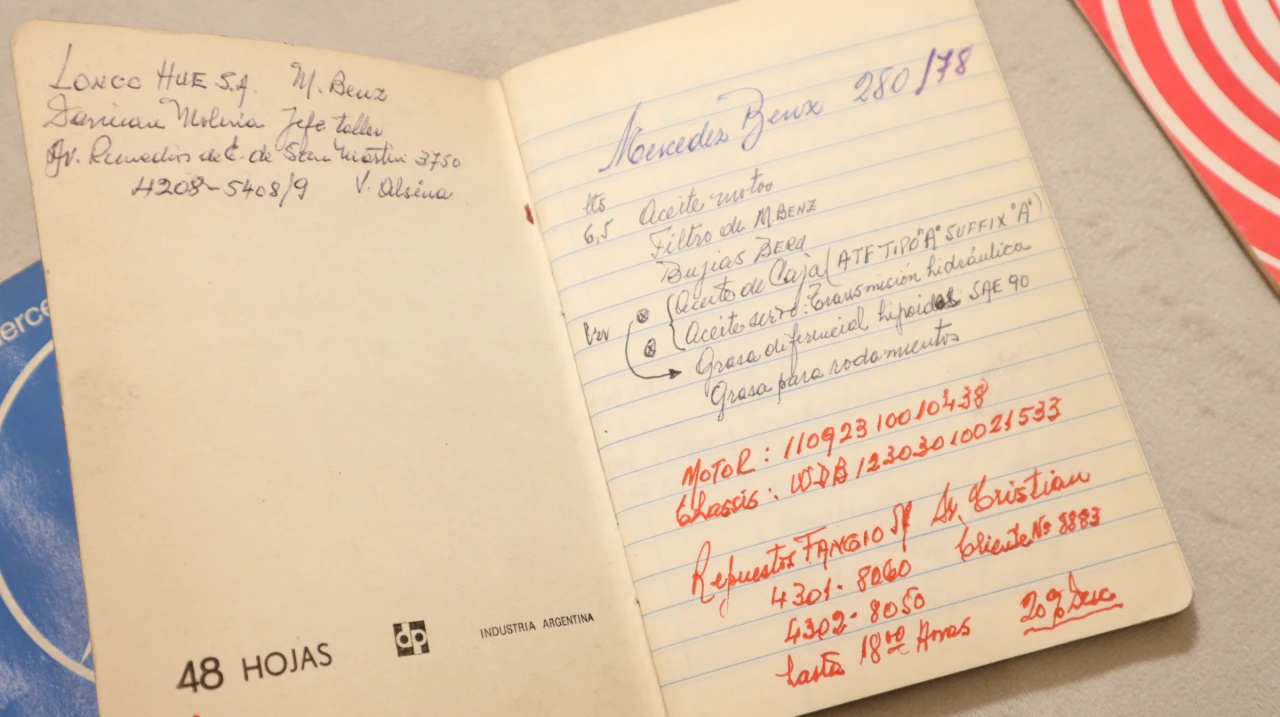 LONCO HUE S.A. M. Benz
Damian Molina Jefe taller
Av. Remedios de E. de San Martin 3750
4208-5408/9 V. Alsina
48 HOJAS
dp
INDUSTRIA ARGENTINA
Mercedez Benz 280/78
lts
6,5 Aceite motor
Filtro de M. BENZ
Bujias BERU
Aceite de Caja (ATF TIPO "A" SUFFIX "A")
Aceite servo. Transmisión hidráulica
Ver
Grasa diferencial hipoidal SAE 90
Grasa para rodamientos
MOTOR: 11092310010438
Chassis: WDB12303010021533
Repuestos FANGIO Sr. Cristian
4301-8060 Cliente No 8883
4302-8050
hasta 18 00 Horas 20% Desc
erce